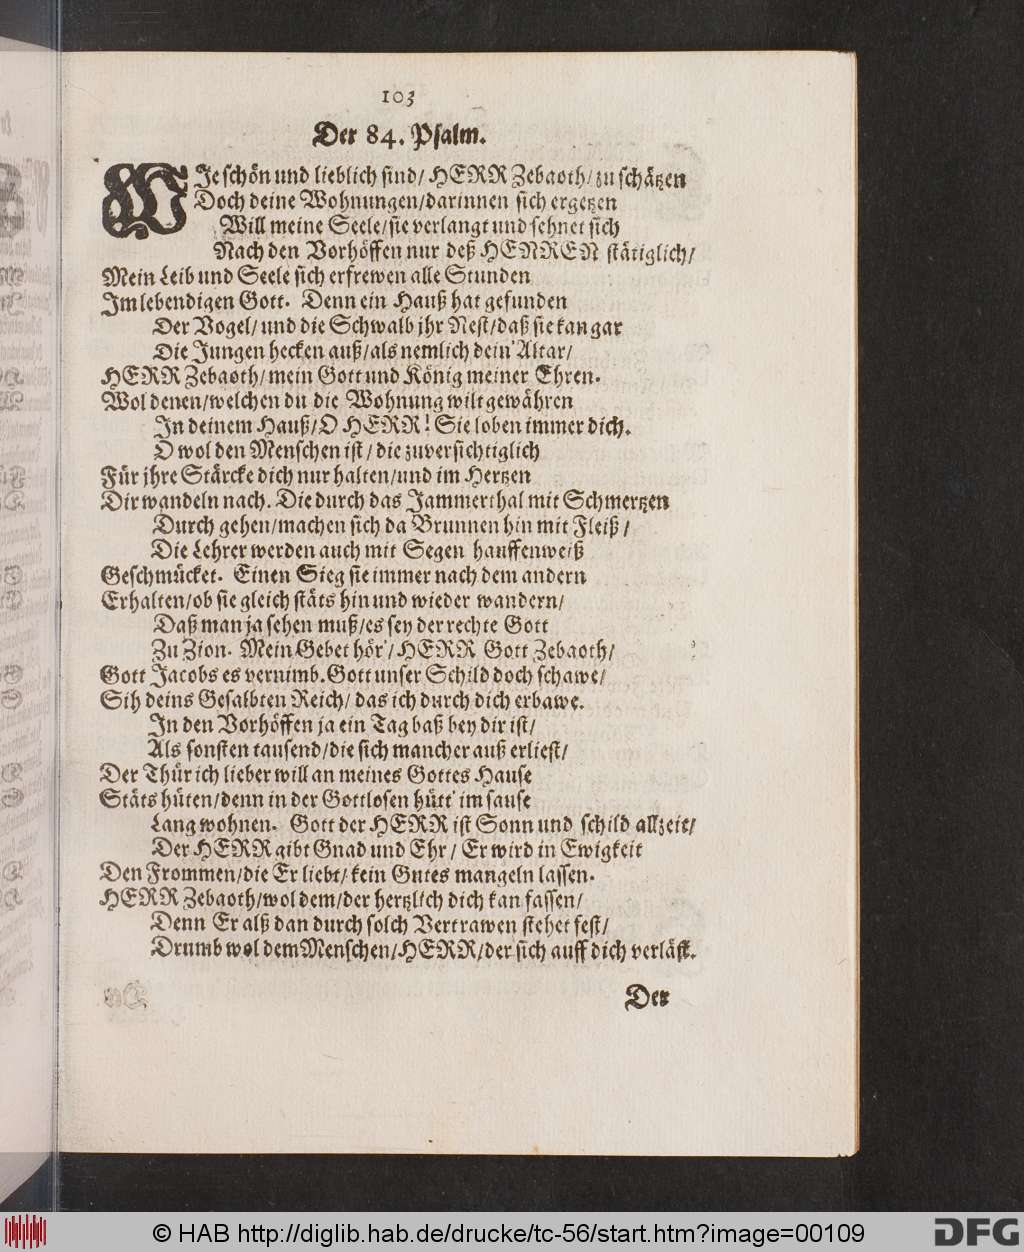 103
Der 84. Psalm.
WIe schön und lieblich sind/ HERR Zebaoth/ zu schätzen
Doch deine Wohnungen/ darinnen sich ergetzen
Will meine Seele/ sie verlangt und sehnet sich
Nach den Vorhöffen nur deß HERREN stätiglich/
Mein Leib und Seele sich erfrewen alle Stunden
Im lebendigen Gott. Denn ein Hauß hat gefunden
Der Vogel/ und die Schwalb jhr Nest/ daß sie kan gar
Die Jungen hecken auß/ als nemlich dein' Altar/
HERR Zebaoth/ mein Gott und König meiner Ehren.
Wol denen/ welchen du die Wohnung wilt gewähren
In deinem Hauß/ O HERR! Sie loben immer dich.
O wol den Menschen ist/ die zuversichtiglich
Für jhre Stärcke dich nur halten/ und im Hertzen
Dir wandeln nach. Die durch das Jammerthal mit Schmertzen
Durch gehen/ machen sich da Brunnen hin mit Fleiß/
Die Lehrer werden auch mit Segen hauffenweiß
Geschmücket. Einen Sieg sie immer nach dem andern
Erhalten/ ob sie gleich stäts hin und wieder wandern/
Daß man ja sehen muß/ es sey der rechte Gott
Zu Zion. Mein Gebet hör'/ HERR Gott Zebaoth/
Gott Jacobs es vernimb. Gott unser Schild doch schawe/
Sih deins Gesalbten Reich/ das ich durch dich erbawe.
In den Vorhöffen ja ein Tag baß bey dir ist/
Als sonsten tausend/ die sich mancher auß erliest/
Der Thür ich lieber will an meines Gottes Hause
Stäts hüten/ denn in der Gottlosen hütt' im sause
Lang wohnen. Gott der HERR ist Sonn und schild allzeit/
Der HERR gibt Gnad und Ehr/ Er wird in Ewigkeit
Den Frommen/ die Er liebt/ kein Gutes mangeln lassen.
HERR Zebaoth/ wol dem/ der hertzlich dich kan fassen/
Denn Er alß dan durch solch Vertrawen stehet fest/
Drumb wol dem Menschen/ HERR/ der sich auff dich verläst.
Der
© HAB http://diglib.hab.de/drucke/tc-56/start.htm?image=00109
DFG